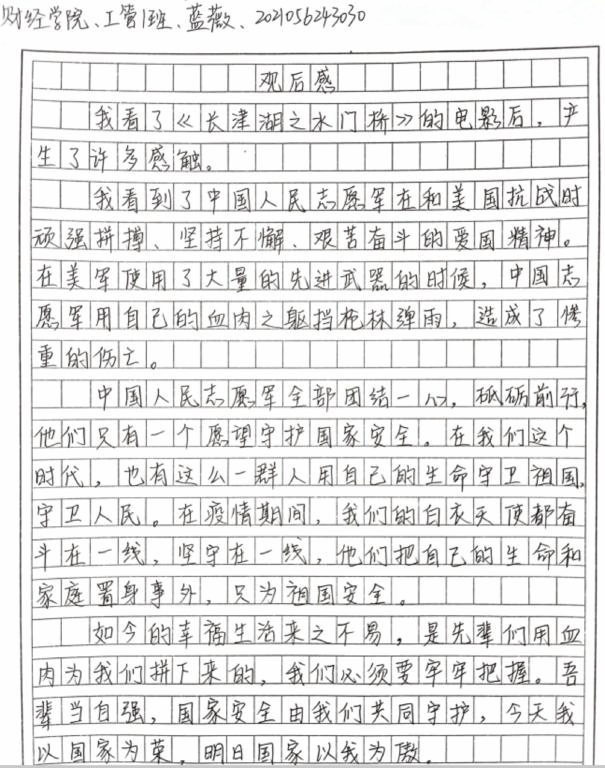 财经学院、工管1班、蓝薇、2021056243030
观后感
我看了《长津湖之水门桥》的电影后，产
生了许多感触。
我看到了中国人民志愿军在和美国抗战时
顽强拼搏、坚持不懈、艰苦奋斗的爱国精神。
在美军使用了大量的先进武器的时候，中国志
愿军用自己的血肉之躯挡枪林弹雨，造成了惨
重的伤亡。
中国人民志愿军全部团结一心，砥砺前行，
他们只有一个愿望守护国家安全。在我们这个
时代，也有这么一群人用自己的生命守卫祖国，
守卫人民。在疫情期间，我们的白衣天使都奋
斗在一线，坚守在一线，他们把自己的生命和
家庭置身事外，只为祖国安全。
如今的幸福生活来之不易，是先辈们用血
肉为我们拼下来的，我们必须要牢牢把握。吾
辈当自强，国家安全由我们共同守护，今天我
以国家为荣，明日国家以我为傲。